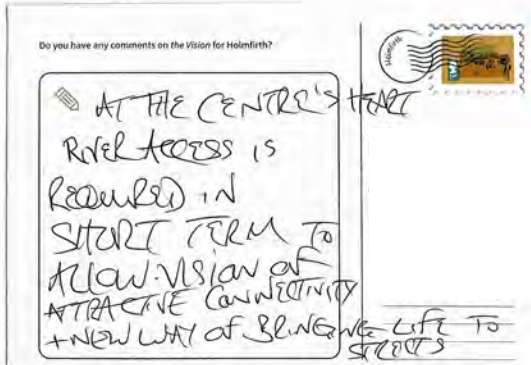 Do you have any comments on the Vision for Holmfirth?
Holmfirth
AT THE CENTRE'S HEART
RIVER ACCESS IS
REQUIRED IN
SHORT TERM TO
ALLOW VISION OF
ATTRACTIVE CONNECTIVITY
+ NEW WAY OF BRINGING LIFE TO
STREETS